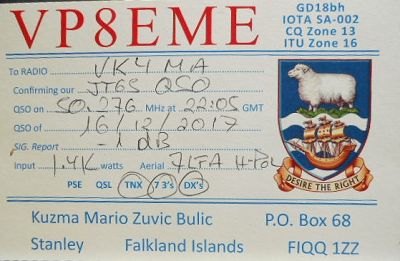 VP8EME
GD18bh
IOTA SA-002
CQ Zone 13
ITU Zone 16
To RADIO VK4MA
Confirming our JT65 QSO
QSO on 50.276 MHz at 22:05 GMT
QSO of 16/12/2017
SIG. Report -1 dB
Input 1.4K watts Aerial 7LFA H-Pol
DESIRE THE RIGHT
PSE QSL TNX 73's DX's
Kuzma Mario Zuvic Bulic P.O. Box 68
Stanley Falkland Islands FIQQ 1ZZ